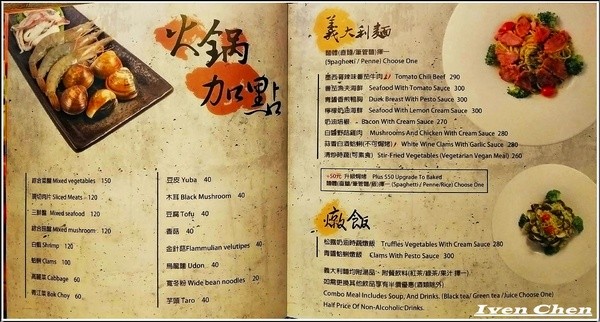 火鍋
加點
綜合菜盤 Mixed vegetables 150
Sliced Meats 120
三鮮盤 Mixed seafood 120
綜合菇盤 Mixed mushroom 120
白蝦 Shrimp 120
蛤蜊 Clams 100
高麗菜 Cabbage 60
青江菜 Bok Choy 60
豆皮 Yuba 40
木耳 Black Mushroom 40
豆腐 Tofu 40
香菇 40
金針菇 Flammulian velutipes 40
烏龍麵 Udon 40
寬冬粉 Wide bean noodles 20
芋頭 Taro 40
義大利麵
麵體(直麵/筆管麵)擇一
(Spaghetti / Penne) Choose One
墨西哥辣味番茄牛肉 Tomato Chili Beef 290
番茄漁夫海鮮 Seafood With Tomato Sauce 300
青醬香煎鴨胸 Duck Breast With Pesto Sauce 300
檸檬奶油海鮮 Seafood With Lemon Cream Sauce 300
奶油培根 Bacon With Cream Sauce 270
白醬野菇雞肉 Mushrooms And Chicken With Cream Sauce 280
蒜香白酒蛤蜊(不可焗烤) White Wine Clams With Garlic Sauce 280
清炒時蔬(可素食) Stir-Fried Vegetables (Vegetarian Vegan Meal) 260
+50元 升級焗烤 Plus $50 Upgrade To Baked
麵體(直麵/筆管麵/飯)擇一 (Spaghetti / Penne/Rice) Choose One
燉飯
松露奶油時蔬燉飯 Truffles Vegetables With Cream Sauce 280
青醬蛤蜊燉飯 Clams With Pesto Sauce 300
義大利麵均附湯品、附餐飲料(紅茶/綠茶/果汁 擇一)
如需更換其他飲品享有半價優惠(酒類除外)
Combo Meal Includes Soup, And Drinks. (Black tea/ Green tea /Juice Choose One)
Half Price Of Non-Alcoholic Drinks.
Iven Chen